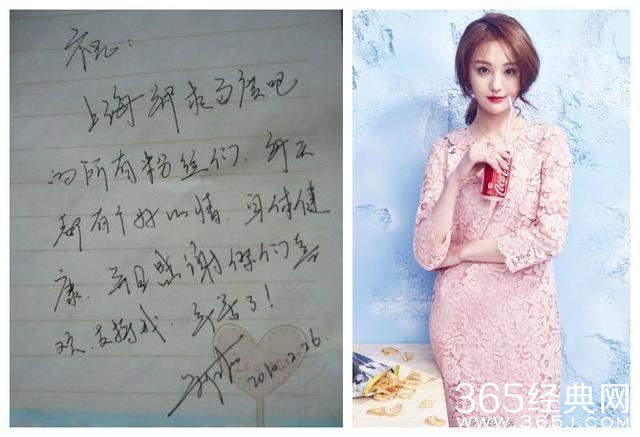 祝:
上海 百度吧
的所有粉丝们、每天
都有个好心情、身体健
康、并且感谢你们喜
欢支持我、辛苦了!
2010.2.26
Coca-Cola
365经典网
www.365J.COM